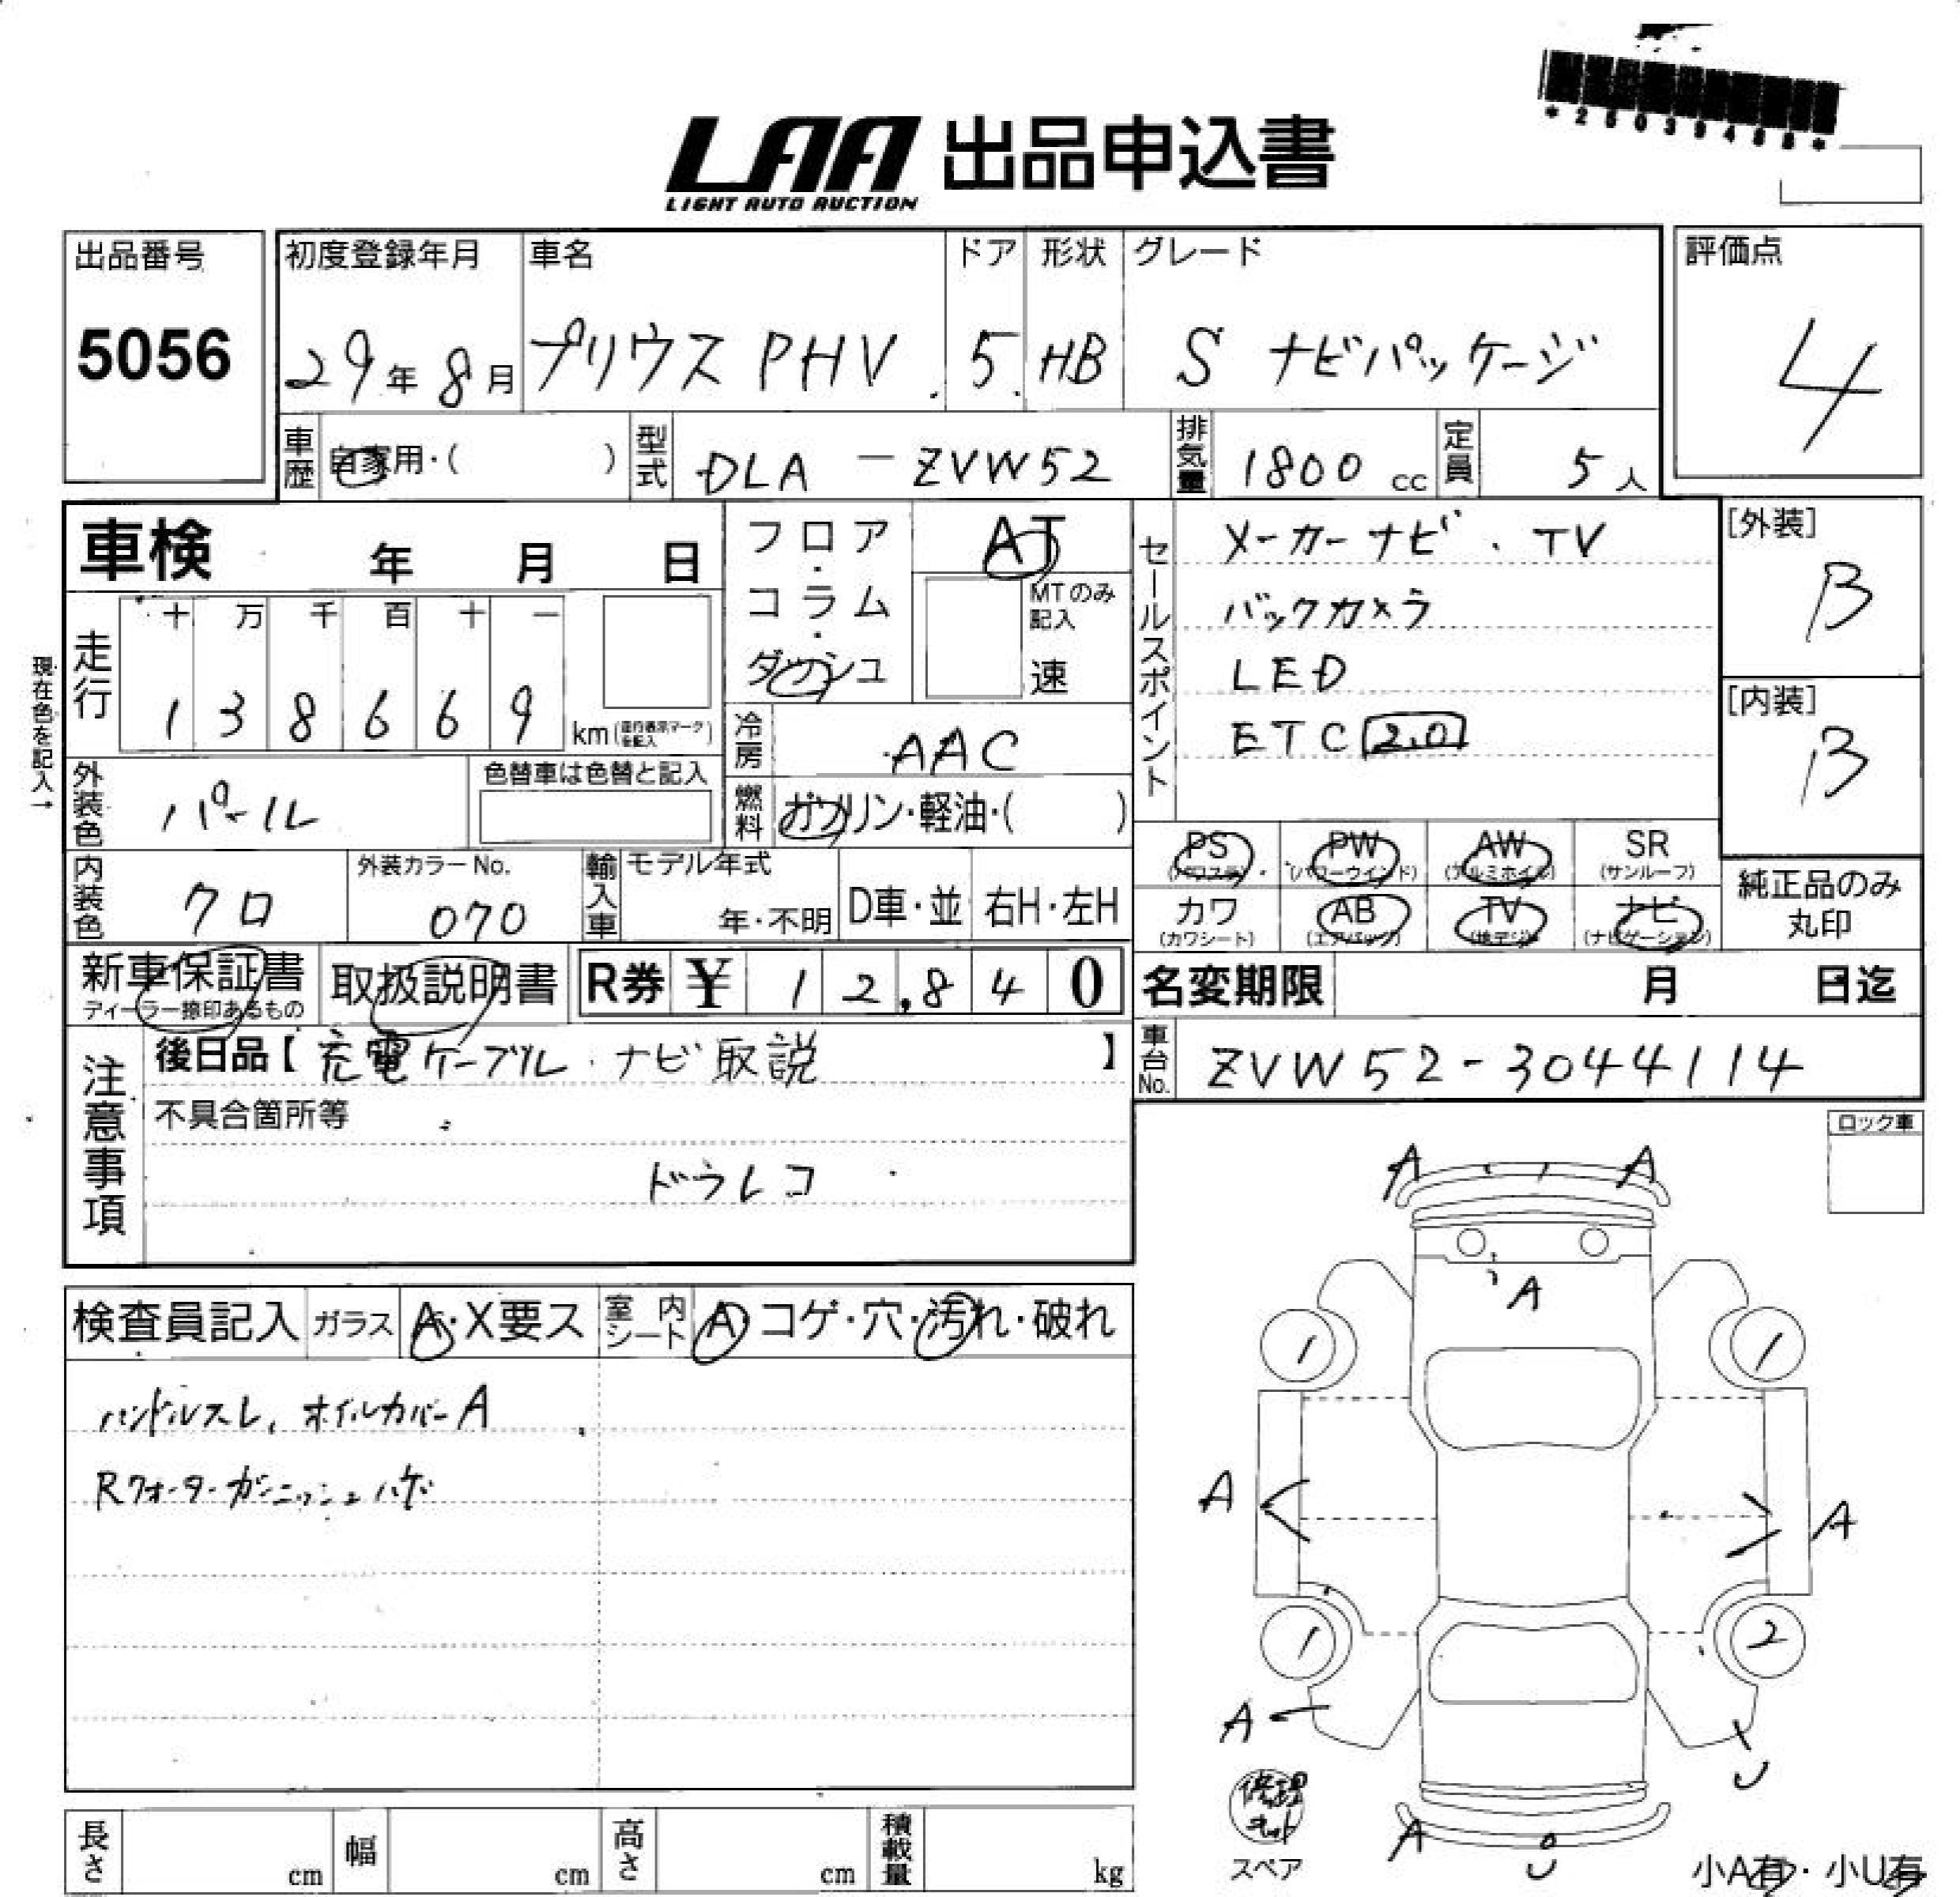 *25039488*
LAA 出品申込書
LIGHT AUTO AUCTION
出品番号
5056
初度登録年月
29年8月
車名
プリウス PHV
ドア
5
形状
HB
グレード
S ナビパッケージ
評価点
4
車歴
自家用・( )
型式
DLA - ZVW52
排気量
1800 cc
定員
5人
車検 年 月 日
フロア・コラム・ダッシュ
AT
MTのみ記入
速
セールスポイント
メーカーナビ・TV
バックカメラ
LED
ETC 2.0
[外装]
B
[内装]
B
現在色を記入→
走行
十 万 千 百 十 一
1 3 8 6 6 9
km(走行表示マークを記入)
冷房
AAC
外装色
パール
色替車は色替と記入
燃料
ガソリン・軽油・( )
PS (パワステ)
PW (パワーウインド)
AW (アルミホイル)
SR (サンルーフ)
カワ (カワシート)
AB (エアバッグ)
TV (地デジ)
ナビ (ナビゲーション)
純正品のみ丸印
内装色
クロ
外装カラーNo.
070
輸入車
モデル年式
年・不明
D車・並
右H・左H
新車保証書
ディーラー捺印あるもの
取扱説明書
R券 ¥ 12,840
名変期限 月 日迄
注意事項
後日品【 充電ケーブル・ナビ取説 】
車台No.
ZVW52-3044114
不具合箇所等
ドラレコ
ロック車
検査員記入
ガラス
A・X要ス
室内シート
A・コゲ・穴・汚れ・破れ
ハンドルスレ、ホイルカバーA
Rクォーターガーニッシュハゲ
A A
A
1 1
A A
1 2
A
U
A U
修理キット
スペア
小A有・小U有
長さ cm
幅 cm
高さ cm
積載量 kg